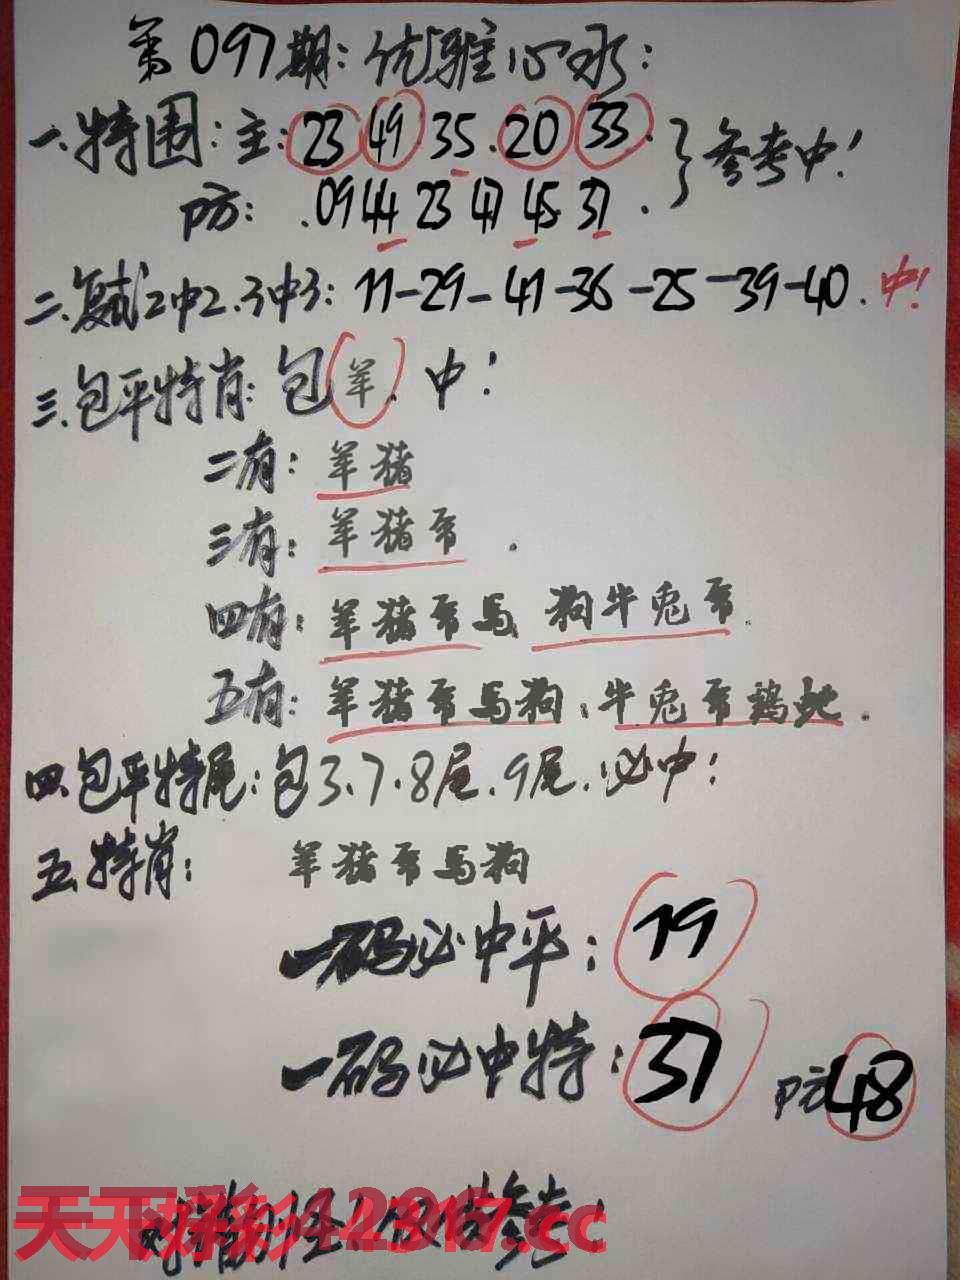 第097期:优雅心水:
一.特围:主:23 49 35.20 33.}参考中!
防:.09 44 23 47 45 37.
二.复试2中2.3中3:11-29-41-36-25-39-40.中!
三.包平特肖:包羊.中!
二有:羊猪
三有:羊猪.
四有:羊猪马 狗牛兔.
五有:羊猪马狗、牛兔鸡蛇.
四.包平特尾:包3.7.8尾.9尾.必中!
五.特肖:羊猪马狗
一码必中平:19
一码必中特:37 防48
天天.cc
参考!